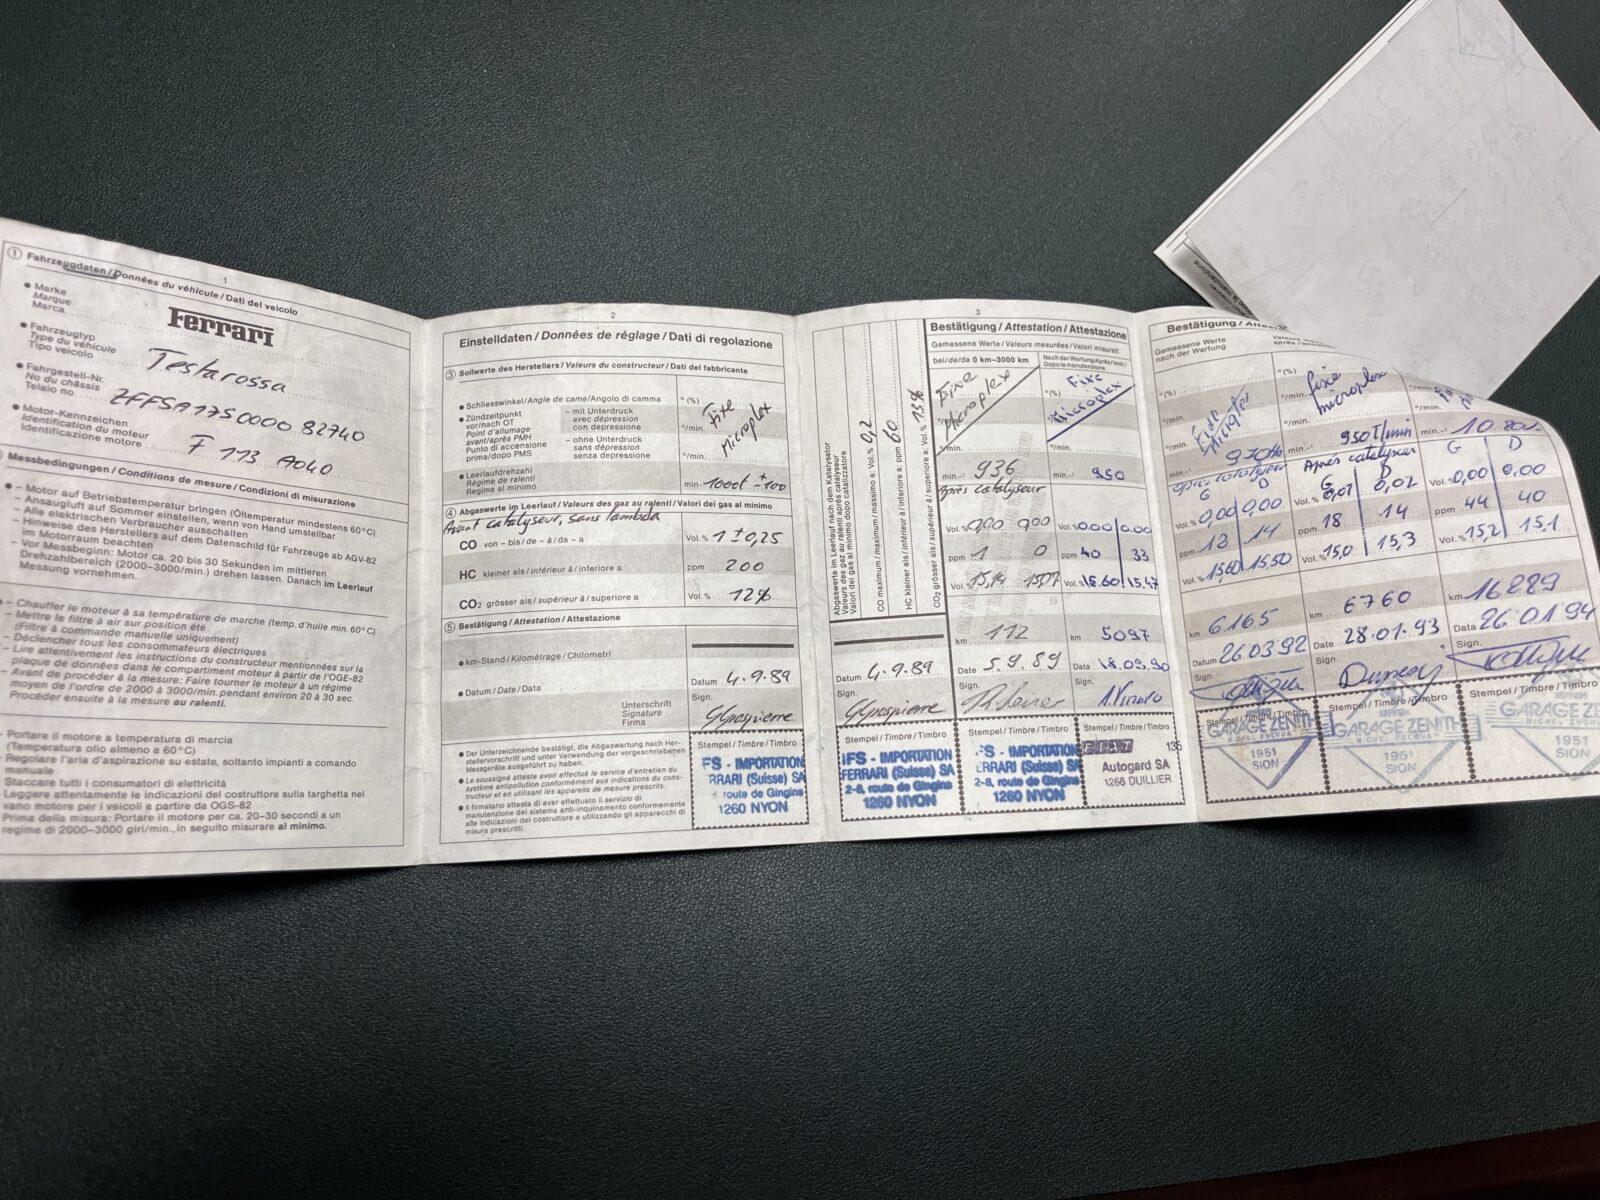 1
① Fahrzeugdaten / Données du véhicule / Dati del veicolo
● Marke
Marque
Marca
Ferrari
● Fahrzeugtyp
Type du véhicule
Tipo veicolo
Testarossa
● Fahrgestell-Nr.
No du châssis
Telaio no
ZFFSA17S0000 82740
● Motor-Kennzeichen
Identification du moteur
Identificazione motore
F 113 A040
Messbedingungen / Conditions de mesure / Condizioni di misurazione
● – Motor auf Betriebstemperatur bringen (Öltemperatur mindestens 60°C)
– Ansaugluft auf Sommer einstellen, wenn von Hand umstellbar
– Alle elektrischen Verbraucher ausschalten
– Hinweise des Herstellers auf dem Datenschild für Fahrzeuge ab AGV-82
im Motorraum beachten
– Vor Messbeginn: Motor ca. 20 bis 30 Sekunden im mittleren
Drehzahlbereich (2000–3000/min.) drehen lassen. Danach im Leerlauf
Messung vornehmen.
– Chauffer le moteur à sa température de marche (temp. d'huile min. 60°C)
– Mettre le filtre à air sur position été
(Filtre à commande manuelle uniquement)
– Déclencher tous les consommateurs électriques
– Lire attentivement les instructions du constructeur mentionnées sur la
plaque de données dans le compartiment moteur à partir de l'OGE-82
– Avant de procéder à la mesure: Faire tourner le moteur à un régime
moyen de l'ordre de 2000 à 3000/min. pendant environ 20 à 30 sec.
Procéder ensuite à la mesure au ralenti.
– Portare il motore a temperatura di marcia
(Temperatura olio almeno a 60°C)
– Regolare l'aria d'aspirazione su estate, soltanto impianti a comando
manuale
Staccare tutti i consumatori di elettricità
Leggere attentamente le indicazioni del costruttore sulla targhetta nel
vano motore per i veicoli a partire da OGS-82
Prima della misura: Portare il motore per ca. 20–30 secondi a un
regime di 2000–3000 giri/min., in seguito misurare al minimo.
2
Einstelldaten / Données de réglage / Dati di regolazione
③ Sollwerte des Herstellers / Valeurs du constructeur / Dati del fabbricante
● Schliesswinkel / Angle de came / Angolo di camma
°(%)
● Zündzeitpunkt
vor/nach OT
Point d'allumage
avant/après PMH
Punto di accensione
prima/dopo PMS
– mit Unterdruck
avec dépression
con depressione
– ohne Unterdruck
sans dépression
senza depressione
°/min.
Fixe
microplex
● Leerlaufdrehzahl
Régime de ralenti
Regime al minimo
min.-¹ 1000t ± 100
④ Abgaswerte im Leerlauf / Valeurs des gaz au ralenti / Valori dei gas al minimo
Avant catalyseur, sans lambda
CO von – bis / de – à / da – a Vol. % 1 ± 0,25
HC kleiner als / inférieur à / inferiore a ppm 200
CO₂ grösser als / supérieur à / superiore a Vol. % 12%
⑤ Bestätigung / Attestation / Attestazione
● km-Stand / Kilométrage / Chilometri
● Datum / Date / Data
Datum 4.9.89
Unterschrift
Signature
Firma
Sign.
● Der Unterzeichnende bestätigt, die Abgaswartung nach Her-
stellervorschrift und unter Verwendung der vorgeschriebenen
Messgeräte ausgeführt zu haben.
● Le soussigné atteste avoir effectué le service d'entretien du
système antipollution conformément aux indications du cons-
tructeur et en utilisant les appareils de mesure prescrits.
● Il firmatario attesta di aver effettuato il servizio di
manutenzione del sistema anti-inquinamento conformemente
alle indicazioni del costruttore e utilizzando gli apparecchi di
misura prescritti.
Stempel / Timbre / Timbro
FS - IMPORTATION
FERRARI (Suisse) SA
route de Gingins
1260 NYON
3
Abgaswerte im Leerlauf nach dem Katalysator
Valeurs des gaz au ralenti après catalyseur
Valori dei gas al minimo dopo catalizzatore
CO maximum / maximum / massimo a: Vol. % 0,2
HC kleiner als / inférieur à / inferiore a: ppm 60
CO₂ grösser als / supérieur à / superiore a: Vol. % 13%
4.9.89
Sign.
Stempel / Timbre / Timbro
IFS - IMPORTATION
FERRARI (Suisse) SA
2-8, route de Gingins
1260 NYON
Bestätigung / Attestation / Attestazione
Gemessene Werte / Valeurs mesurées / Valori misurati
bei/de/da 0 km–3000 km
Fixe
Microplex
min.-¹ 936
Après catalyseur
Vol. % 0,00 0,00
ppm 1 0
Vol. % 15,14 15,07
km 112
Date 5.9.89
Sign.
Stempel / Timbre / Timbro
FS - IMPORTATION
FERRARI (Suisse) SA
2-8, route de Gingins
1260 NYON
Nach der Wartung / Après l'entr. /
Dopo la manutenzione
°(%)
Fixe
Microplex
°/min.
min.-¹ 950
Vol. % 0.00 0.00
ppm 40 33
Vol. % 15.60 15.47
km 5097
Data 18.09.90
Sign.
Stempel / Timbre / Timbro
FIAT 135
Autogard SA
1268 DUILLIER
Bestätigung /
Gemessene Werte
nach der Wartung
Fixe
min.-¹ 970
après catalyseur
G D
Vol. % 0,00 0,00
ppm 13 14
Vol. % 15,60 15,50
km 6165
Datum 26.03.92
Sign.
Stempel / Timbre / Timbro
GARAGE ZENITH
1951
SION
°(%)
fixe
microplex
°/min.
min.-¹ 950 T/min
Après catalyseur
G D
Vol. % 0,01 0,02
ppm 18 14
Vol. % 15,0 15,3
km 6760
Date 28.01.93
Sign.
Stempel / Timbre / Timbro
GARAGE ZENITH
1951
SION
min.-¹
G D
Vol. % 0,00 0,00
ppm 44 40
Vol. % 15,2 15,1
km 16289
Data 26.01.94
Sign.
Stempel / Timbre / Timbro
GARAGE ZENITH
1951
SION